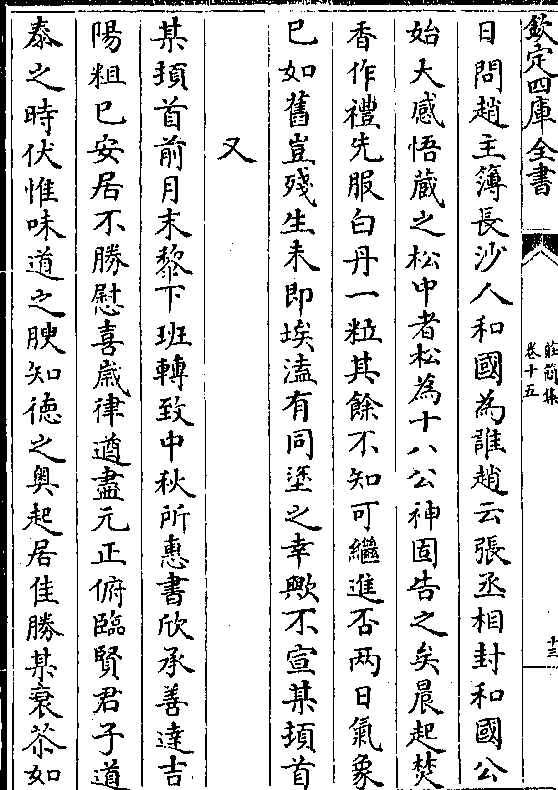 欽定四庫全書
莊簡集
卷十五
十三
日問趙主簿長沙人和國為誰趙云張丞相封和國公
始大感悟蔵之松中者松為十八公神固告之矣晨起焚
香作禮先服白丹一粒其餘不知可繼進否两日氣象
已如舊豈殘生未即埃溘有同塗之幸歟不宣某頓首
又
某頓首前月末黎下班轉致中秋所惠書欣承善達吉
陽粗已安居不勝慰喜嵗律遒盡元正俯臨賢君子道
泰之時伏惟味道之腴知徳之奥起居佳勝某衰苶如